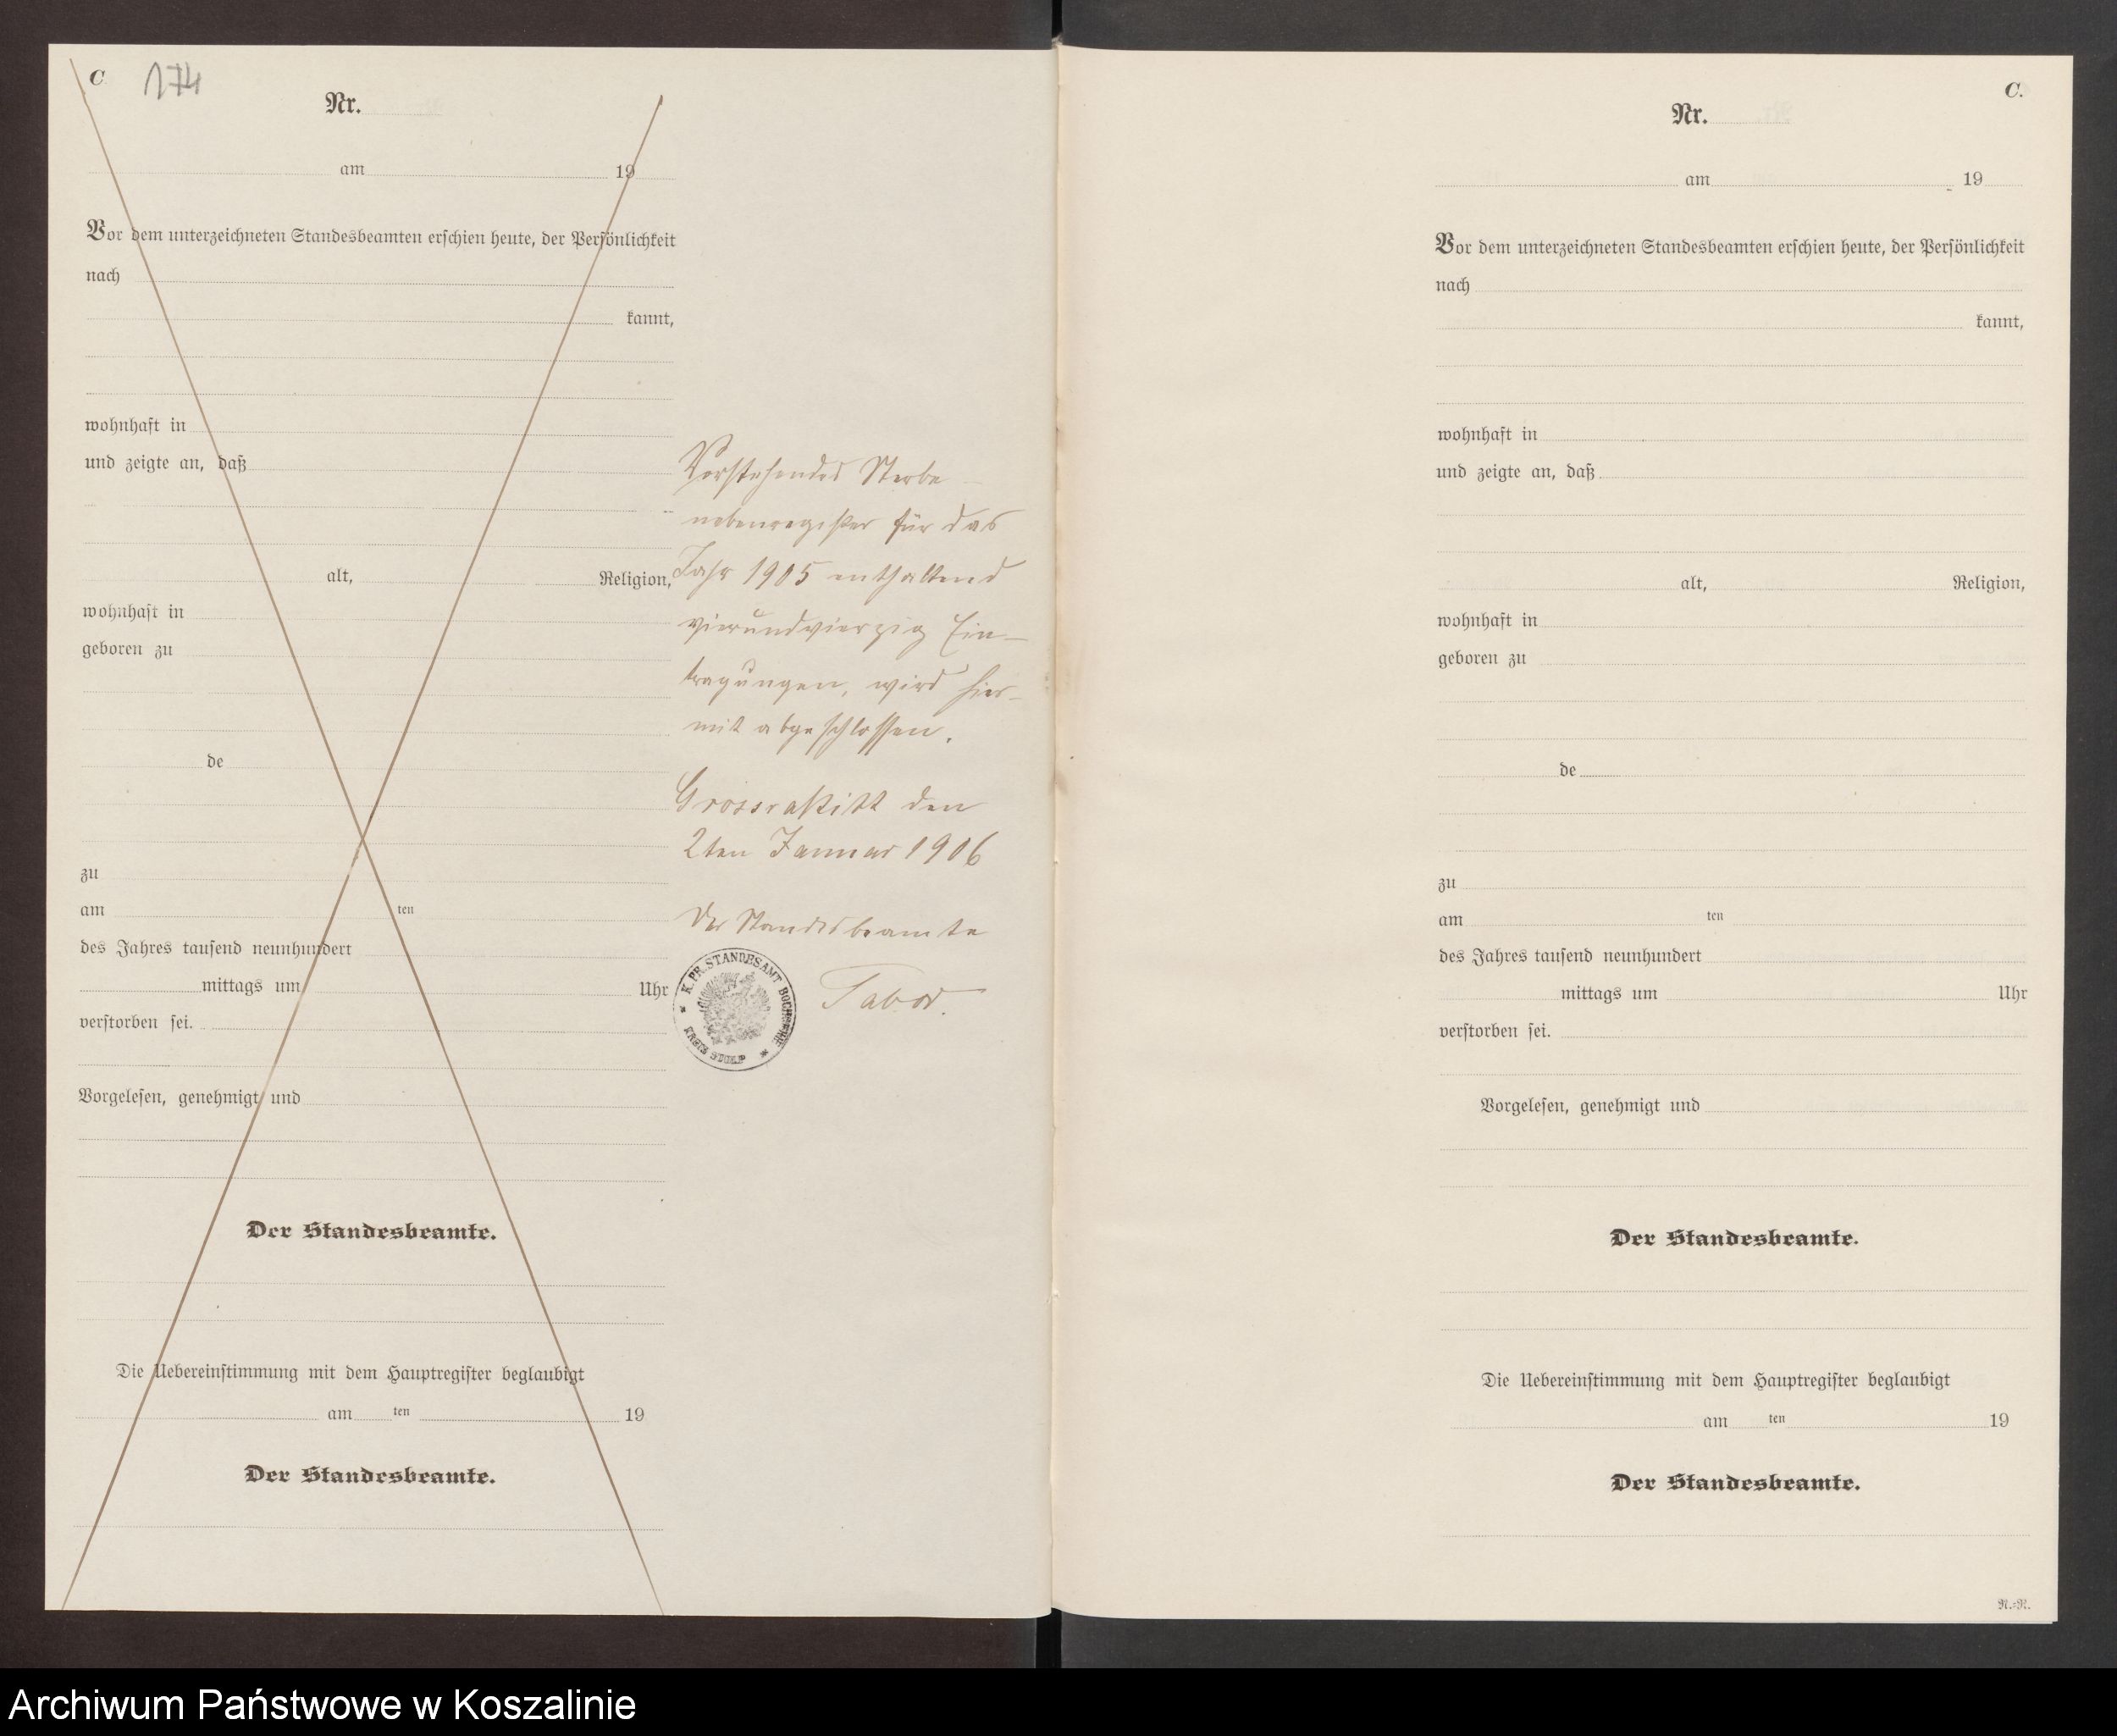 C
174
Nr.
am 19
Vor dem unterzeichneten Standesbeamten erschien heute, der Persönlichkeit
nach
kannt,
wohnhaft in
und zeigte an, daß
alt, Religion,
wohnhaft in
geboren zu
de
zu
am ten
des Jahres tausend neunhundert
mittags um Uhr
verstorben sei.
Vorgelesen, genehmigt und
Der Standesbeamte.
Die Uebereinstimmung mit dem Hauptregister beglaubigt
am ten 19
Der Standesbeamte.
Vorstehendes Sterbe-
nebenregister für das
Jahr 1905 enthaltend
vierundvierzig Ein-
tragungen, wird hier-
mit abgeschlossen.
Grossrakitt den
2ten Januar 1906
Der Standesbeamte
Tabor.
K. PR. STANDESAMT
KREIS STOLP
C.
Nr.
am 19
Vor dem unterzeichneten Standesbeamten erschien heute, der Persönlichkeit
nach
kannt,
wohnhaft in
und zeigte an, daß
alt, Religion,
wohnhaft in
geboren zu
de
zu
am ten
des Jahres tausend neunhundert
mittags um Uhr
verstorben sei.
Vorgelesen, genehmigt und
Der Standesbeamte.
Die Uebereinstimmung mit dem Hauptregister beglaubigt
am ten 19
Der Standesbeamte.
R.=R.
Archiwum Państwowe w Koszalinie